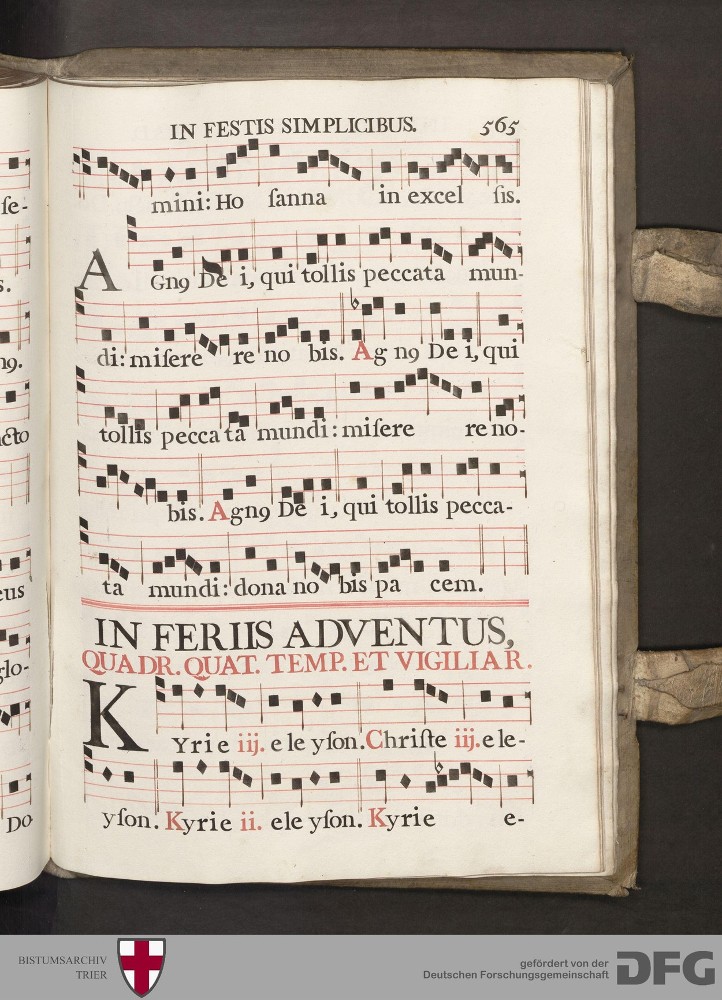 IN FESTIS SIMPLICIBUS. 565
ſe-
mini: Ho ſanna in excel ſis.
s.
A Gnꝯ De i, qui tollis peccata mun-
nꝯ.
di: miſere re no bis. Ag nꝯ De i, qui
cto
tollis pecca ta mundi: miſere re no-
bis. Agnꝯ De i, qui tollis pecca-
eus
ta mundi: dona no bis pa cem.
IN FERIIS ADVENTUS,
glo-
QUADR. QUAT. TEMP. ET VIGILIAR.
K Yrie iij. e le yſon. Chriſte iij. e le-
Do
yſon. Kyrie ii. ele yſon. Kyrie e-
BISTUMSARCHIV
TRIER
gefördert von der
Deutschen Forschungsgemeinschaft
DFG